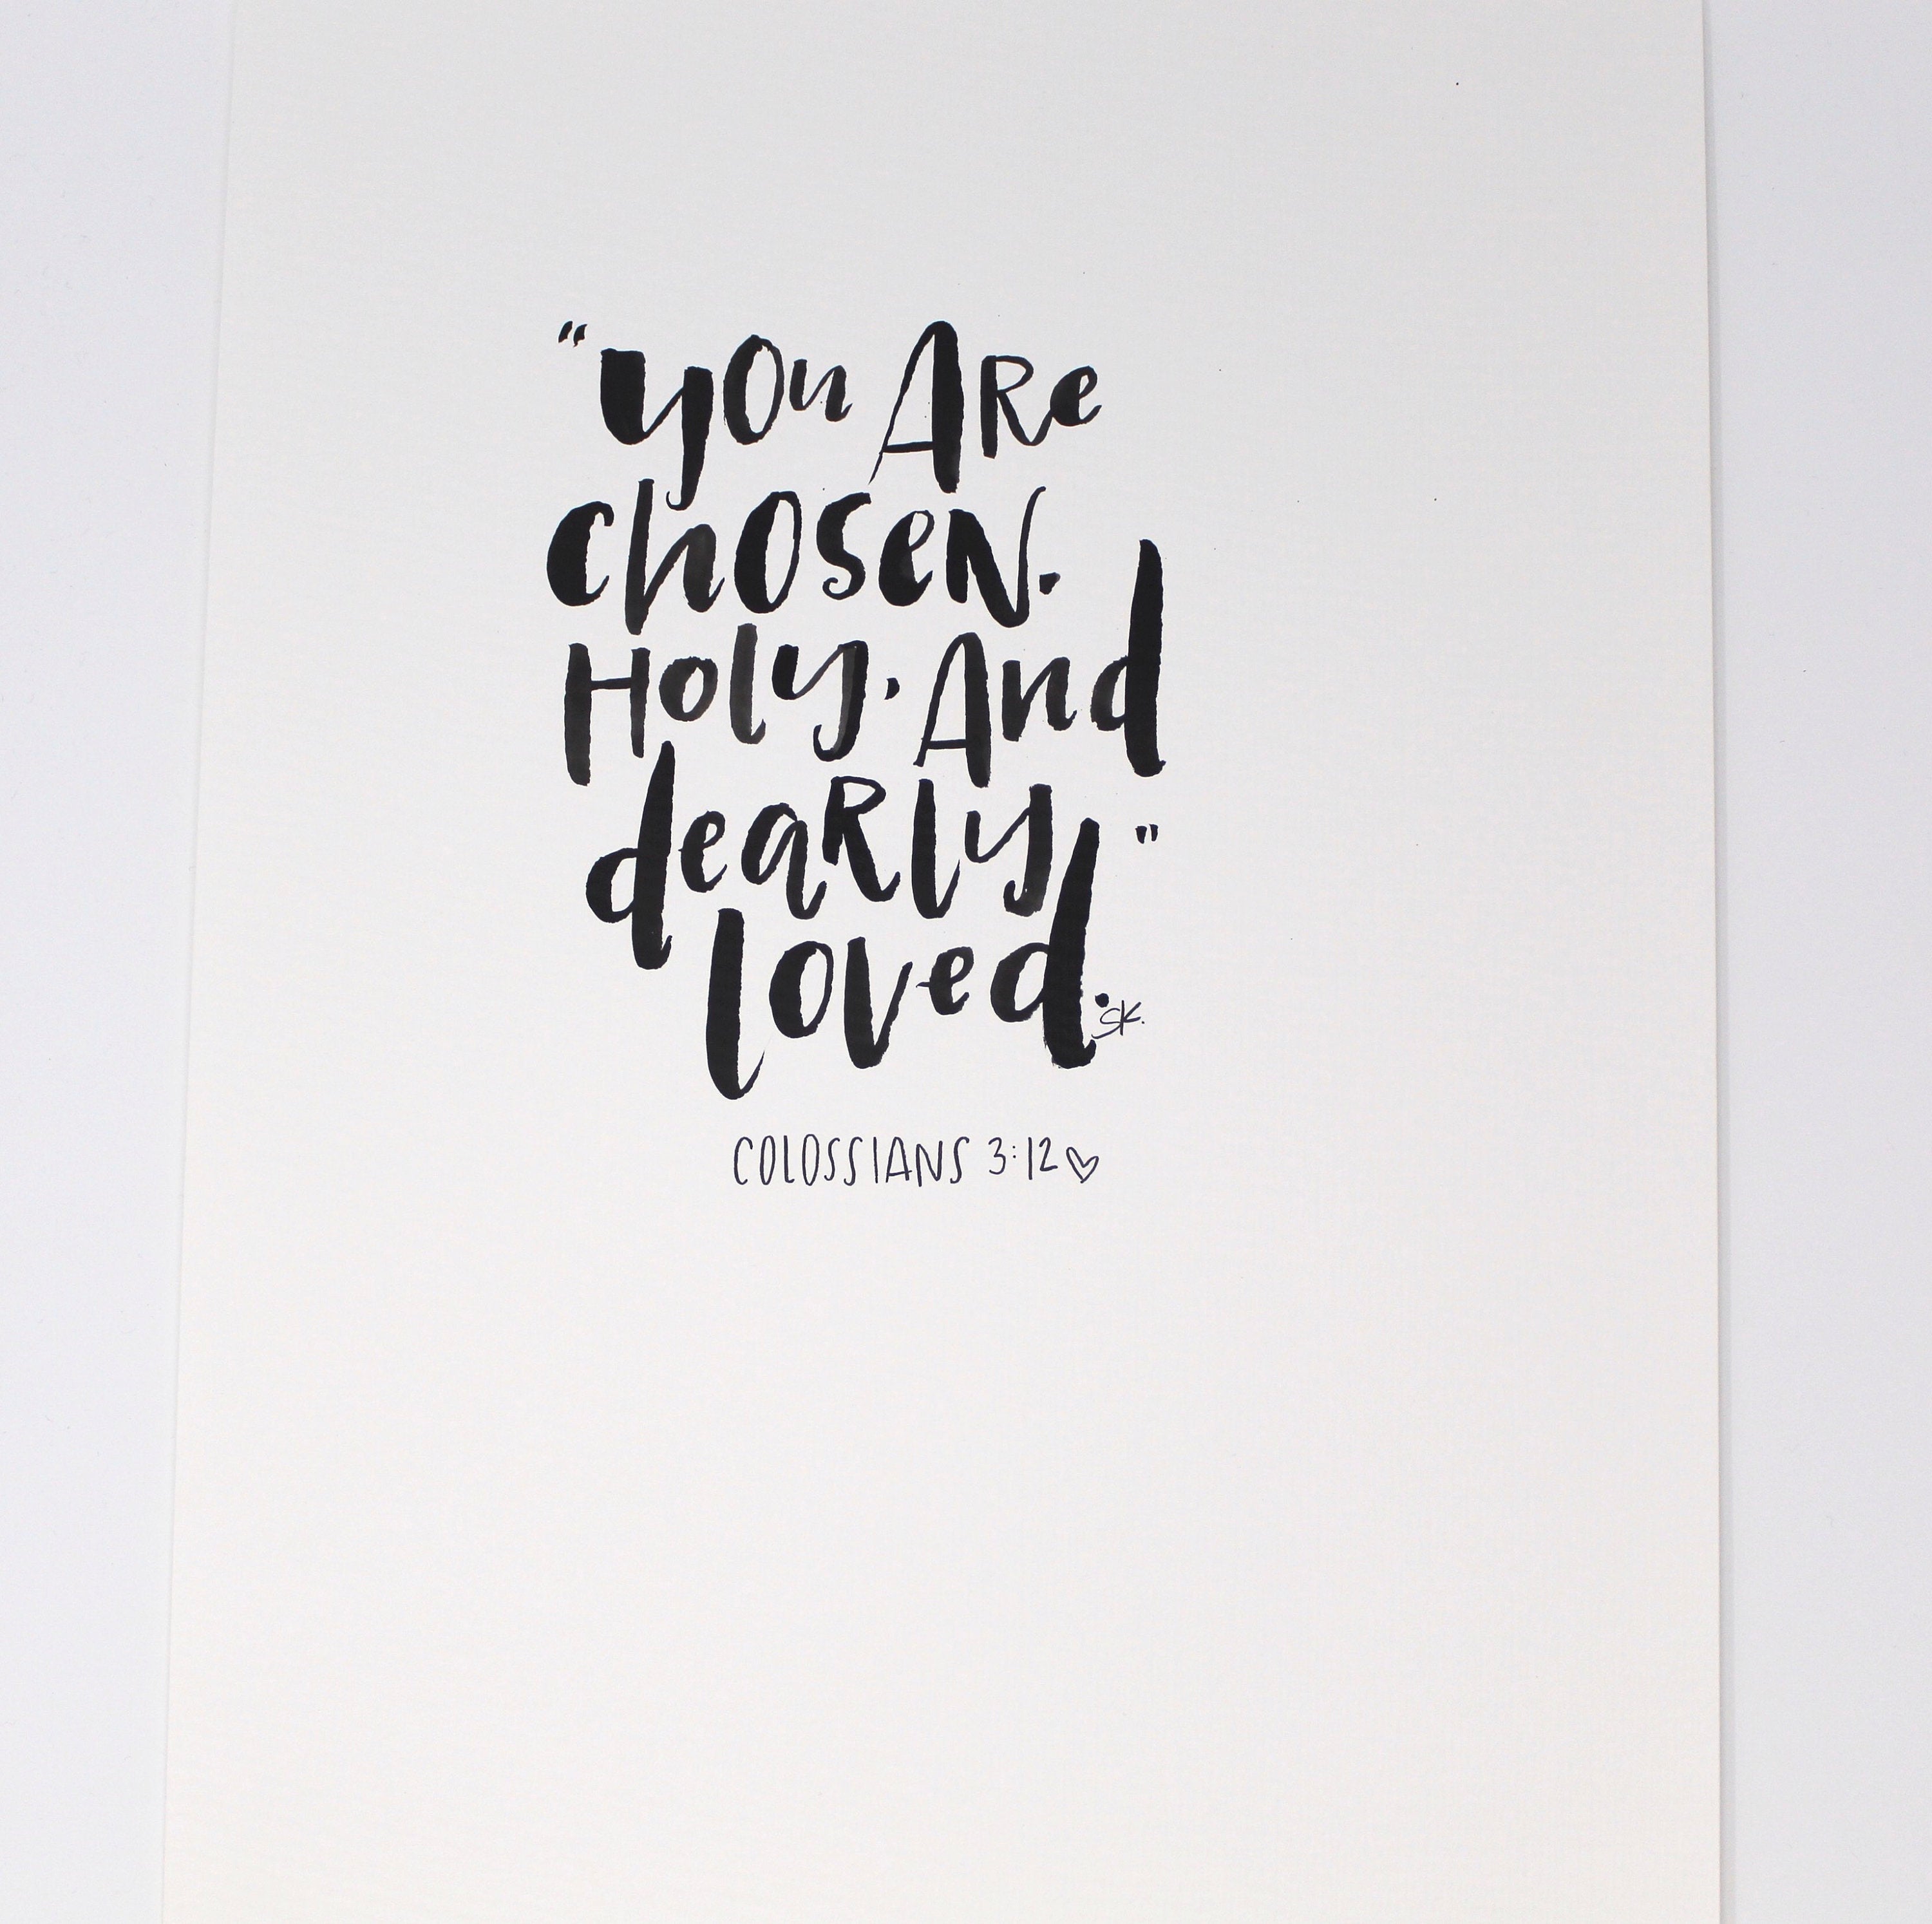 "you Are
chosen.
Holy. And
deaRly
loved."
SK.
COLOSSIANS 3:12♡